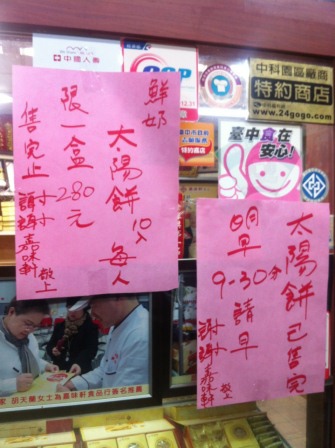 中國人壽
鮮奶
太陽餅 10入 每人
限一盒 280元
售完止 謝謝 嘉味軒 敬上
中科園區廠商
特約商店
www.24gogo.com
臺中食在
安心!
太陽餅已售完
明早
9-30分 請早
謝謝 嘉味軒 敬上
家 胡天蘭女士為嘉味軒食品行簽名推薦